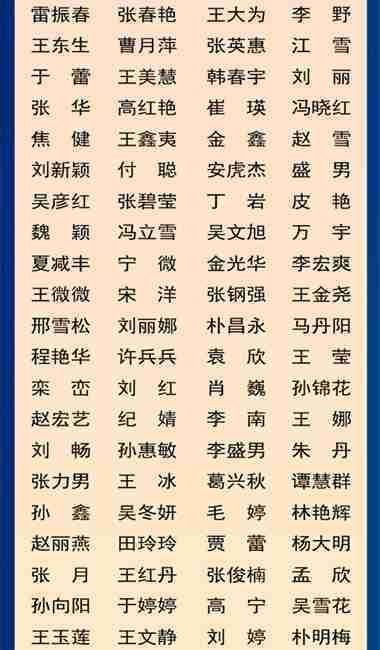 雷振春 张春艳 王大为 李 野
王东生 曹月萍 张英惠 江 雪
于 蕾 王美慧 韩春宇 刘 丽
张 华 高红艳 崔 瑛 冯晓红
焦 健 王鑫夷 金 鑫 赵 雪
刘新颖 付 聪 安虎杰 盛 男
吴彦红 张碧莹 丁 岩 皮 艳
魏 颖 冯立雪 吴文旭 万 宇
夏减丰 宁 微 金光华 李宏爽
王微微 宋 洋 张钢强 王金尧
邢雪松 刘丽娜 朴昌永 马丹阳
程艳华 许兵兵 袁 欣 王 莹
栾 峦 刘 红 肖 巍 孙锦花
赵宏艺 纪 婧 李 南 王 娜
刘 畅 孙惠敏 李盛男 朱 丹
张力男 王 冰 葛兴秋 谭慧群
孙 鑫 吴冬妍 毛 婷 林艳辉
赵丽燕 田玲玲 贾 蕾 杨大明
张 月 王红丹 张俊楠 孟 欣
孙向阳 于婷婷 高 宁 吴雪花
王玉莲 王文静 刘 婷 朴明梅